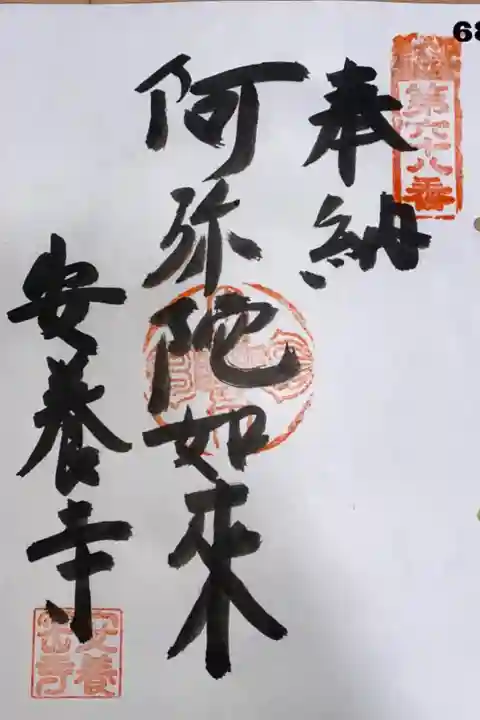 68
第六十八番
奉納
阿弥陀如来
安養寺
安養寺